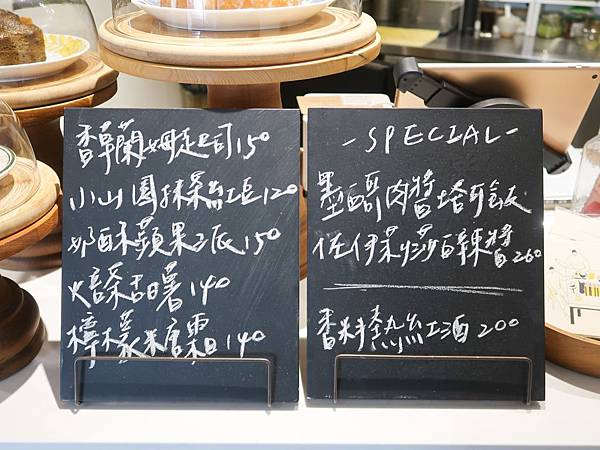 香草蘭姆起司150
小山園抹茶紅豆120
奶酥蘋果派150
焙茶甜薯140
檸檬糖霜140
-SPECIAL-
墨西哥肉醬塔可飯
佐伊莉莎酸辣醬260
香料熱紅酒200